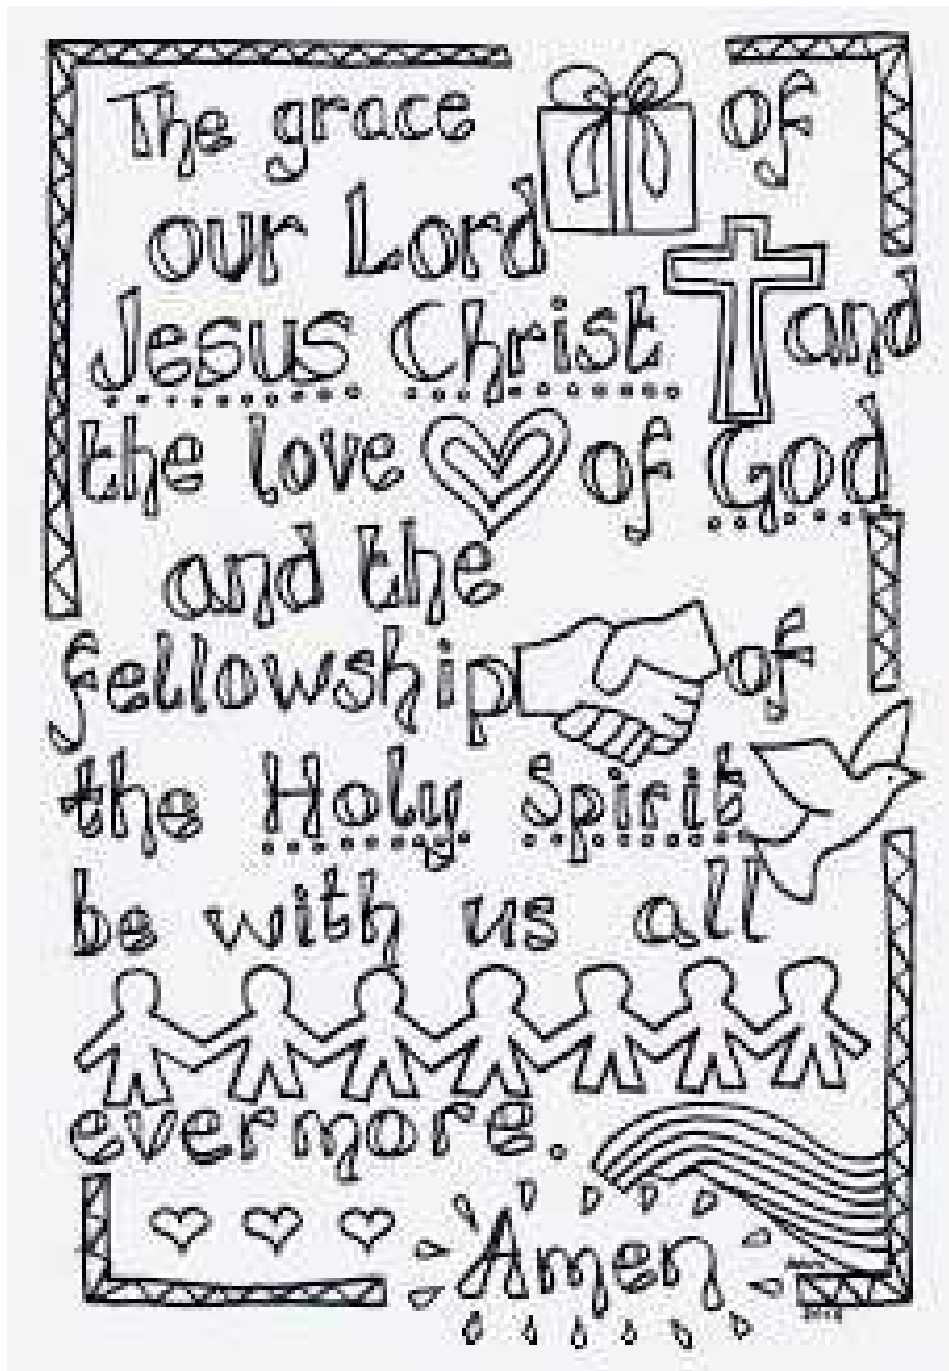 The grace of
our Lord
Jesus Christ and
the love of God
and the
fellowship of
the Holy Spirit
be with us all
evermore.
Amen